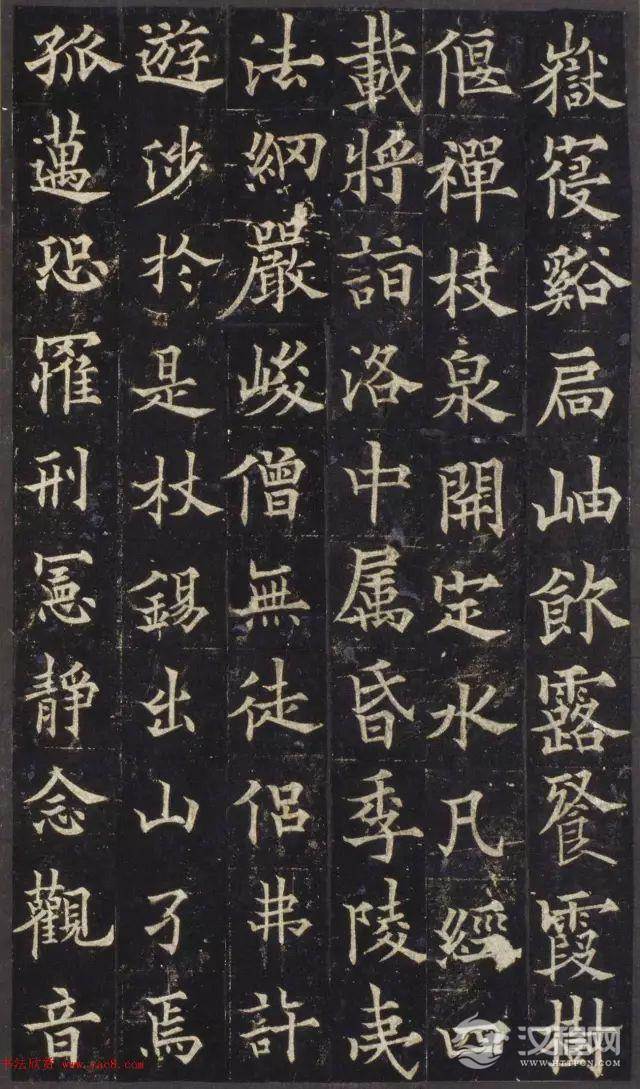 嶽寑谿扃岫飲露餐霞卉
偃禪枝泉開定水凡經四
載將詣洛中属昏季陵夷
法網嚴峻僧無徒侶弗許
遊涉於是杖錫出山孑焉
孤邁恐罹刑憲靜念觀音
书法欣赏 www.yac8.com
汉程网
HTTPCN.COM